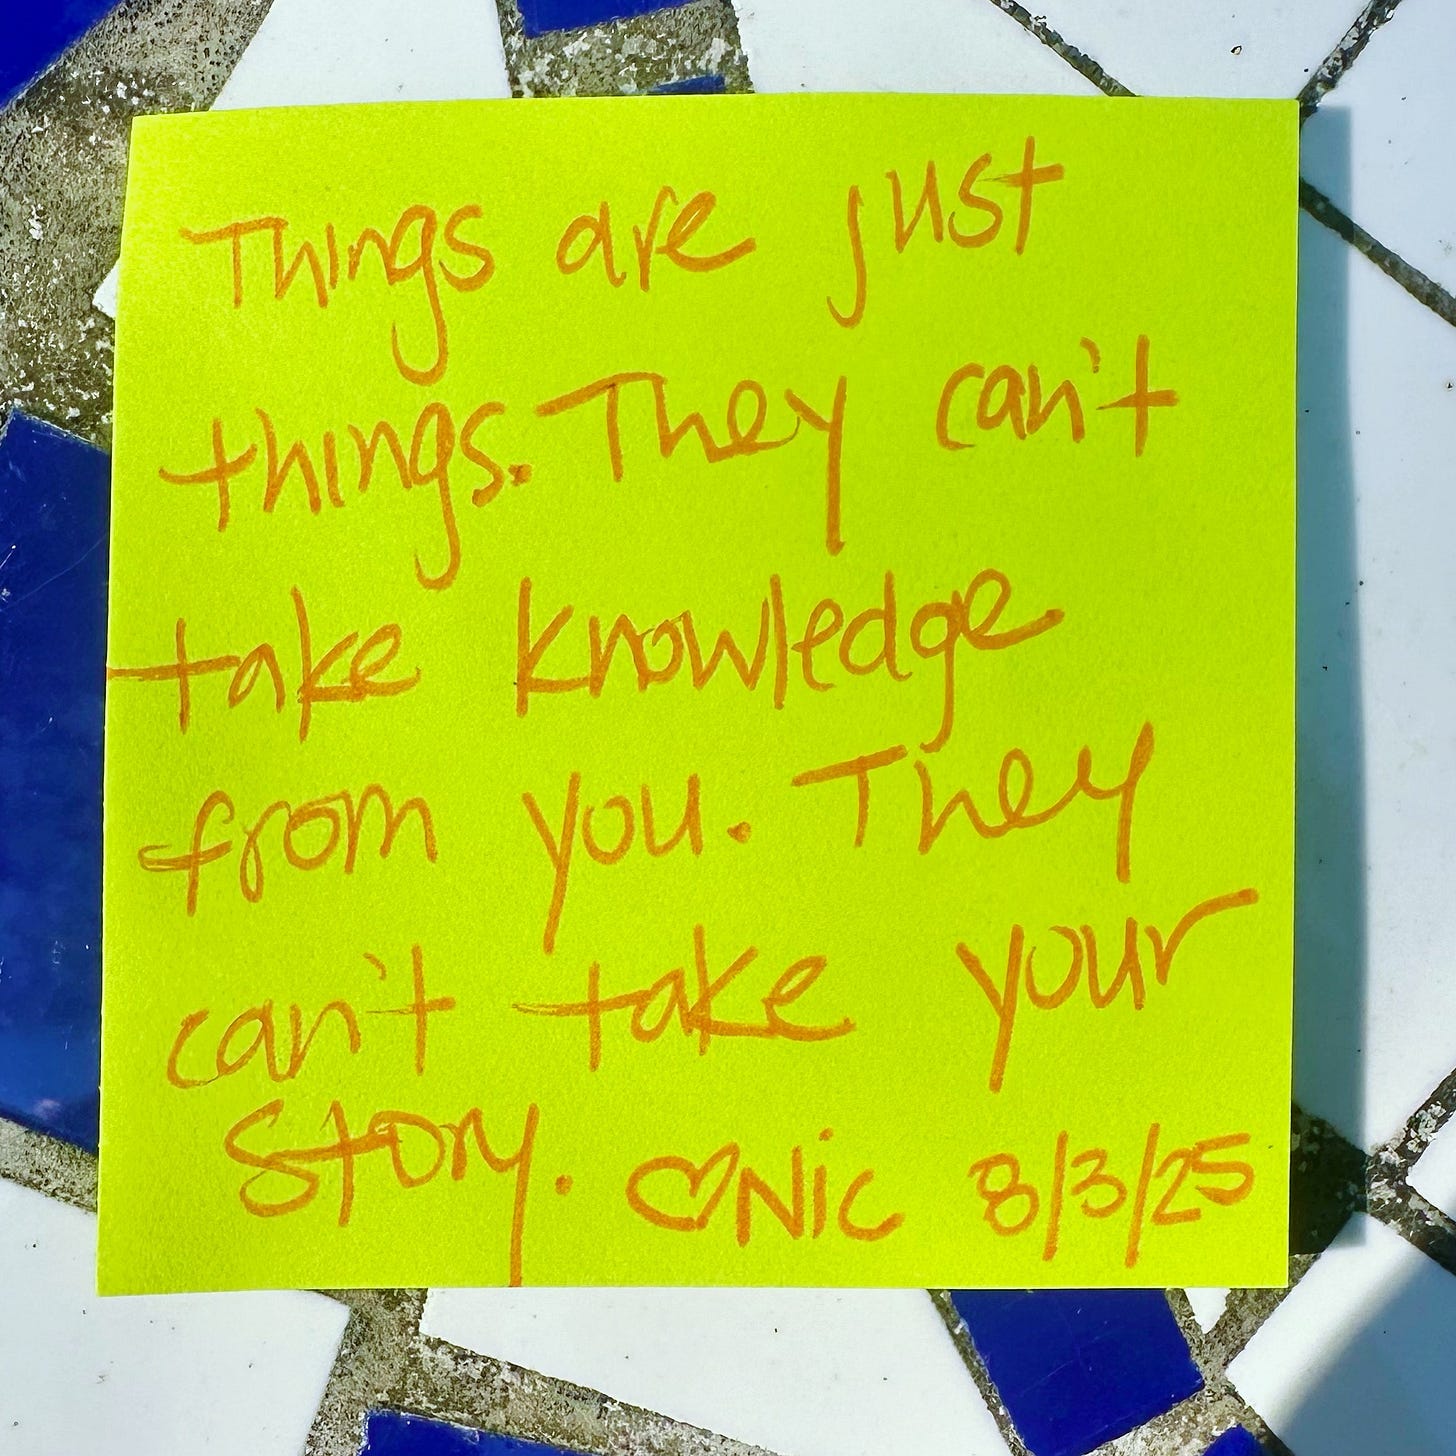 Things are just
things. They can't
take knowledge
from you. They
can't take your
story. ♡Nic 8/3/25